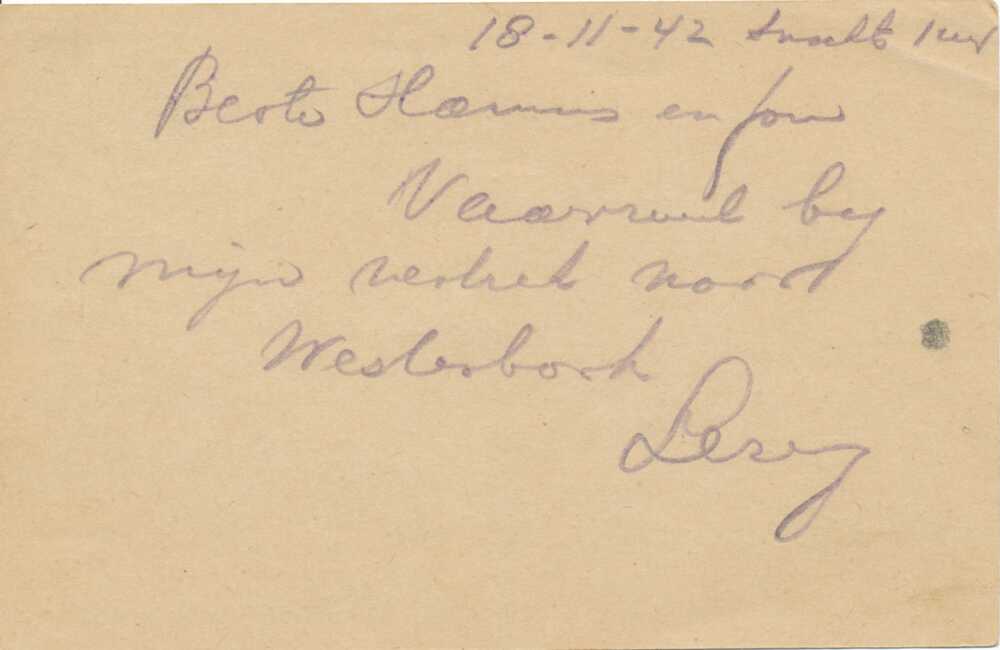 18-11-42 1 uur
Beste Harmus en fam
Vaarwel by
mijn vertrek naar
Westerbork
Levy